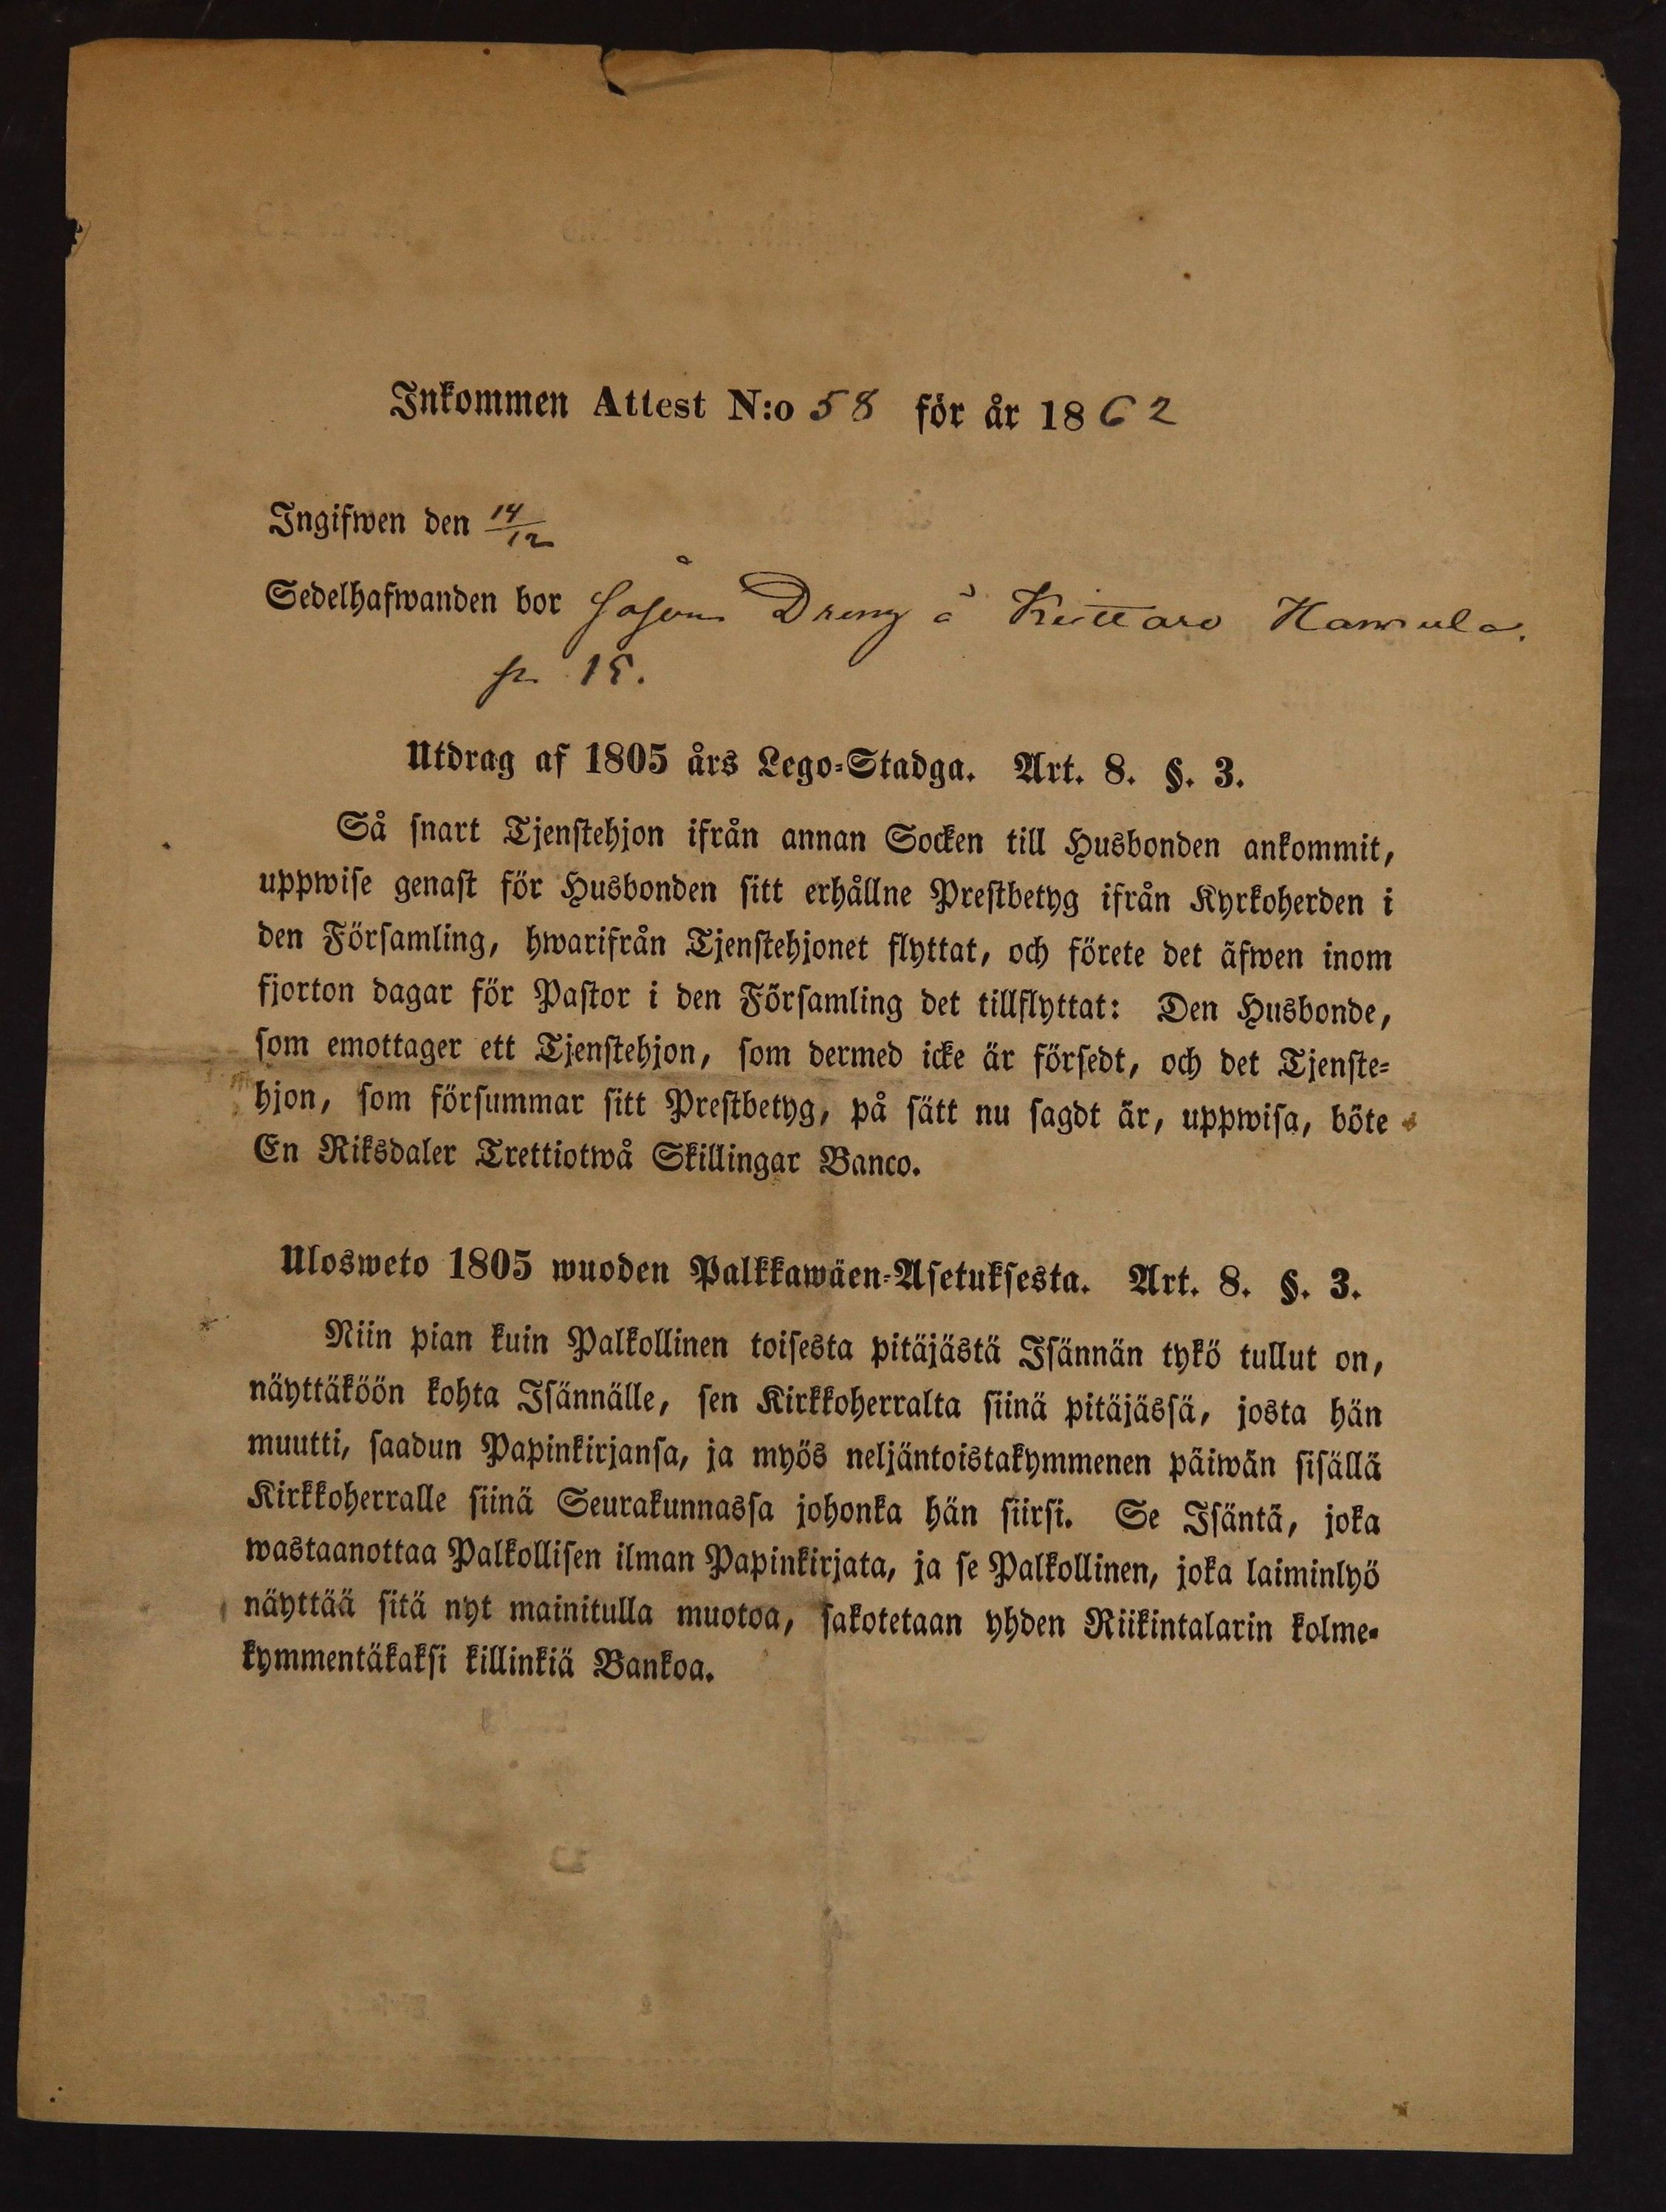 Inkommen Attest N:o 58 för år 1862
Ingifwen den 14/12
Sedelhafwanden bor såsom Dreng å Kuttaro Hannula.
p. 15.
Utdrag af 1805 års Lego-Stadga. Art. 8. §. 3.
Så snart Tjenstehjon ifrån annan Socken till Husbonden ankommit,
uppwise genast för Husbonden sitt erhållne Prestbetyg ifrån Kyrkoherden i
den Församling, hwarifrån Tjenstehjonet flyttat, och förete det äfwen inom
fjorton dagar för Pastor i den Församling det tillflyttat: Den Husbonde,
som emottager ett Tjenstehjon, som dermed icke är försedt, och det Tjenste-
hjon, som försummar sitt Prestbetyg, på sätt nu sagdt är, uppwisa, böte
En Riksdaler Trettiotwå Skillingar Banco.
Ulosweto 1805 wuoden Palkkawäen-Asetuksesta. Art. 8. §. 3.
Niin pian kuin Palkollinen toisesta pitäjästä Isännän tykö tullut on,
näyttäköön kohta Isännälle, sen Kirkkoherralta siinä pitäjässä, josta hän
muutti, saadun Papinkirjansa, ja myös neljäntoistakymmenen päiwän sisällä
Kirkkoherralle siinä Seurakunnassa johonka hän siirsi. Se Isäntä, joka
wastaanottaa Palkollisen ilman Papinkirjata, ja se Palkollinen, joka laiminlyö
näyttää sitä nyt mainitulla muotoa, sakotetaan yhden Riikintalarin kolme-
kymmentäkaksi killinkiä Bankoa.